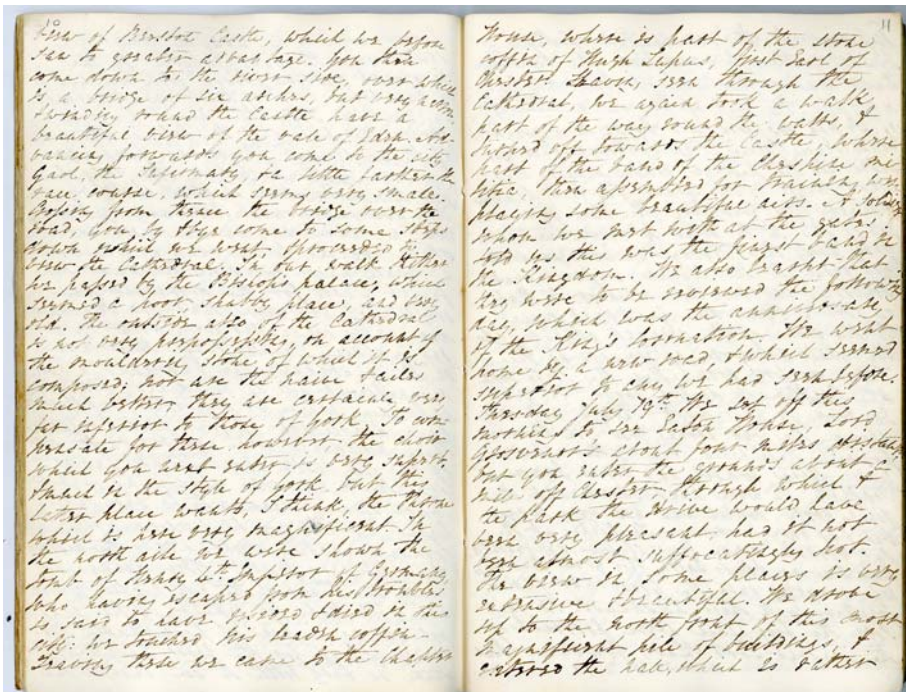 10
view of Beeston Castle, which we before
saw to greater advantage. You then
come down to the river side, over which
is a bridge of six arches, but very narrow
winding round the Castle have a
beautiful view of the vale of Eden. Ad-
vancing forwards you come to the city
Gaol, the Infirmary, & a little farther the
race course, which seems very small.
Crossing from thence the bridge over the
road, you by & bye come to some steps
down which we went & proceeded to
view the Cathedral. In our walk thither
we passed by the Bishop's palace, which
seemed a poor shabby place, and very
old. The outside also of the Cathedral
is not very prepossessing, on account of
the mouldering stone of which it is
composed; nor are the naive & ailes
much better, they are certainly very
far inferior to those of York. To com
pensate for these however the choir
which you next enter is very superb.
& much in the style of York but this
latter place wants, I think, the throne
which is here very magnificent. In
the north aile we were shown the
tomb of Henry 4th Emperor of Germany
who having escaped from his troubles
is said to have resided & died in the
city: we touched his leaden coffin
Leaving these we came to the Chapter
11
House, where is part of the stone
coffin of Hugh Lupus, first Earl of
Chester. Having seen through the
Cathedral, we again took a walk
part of the way round the walls, &
turned off towards the Castle, where
part of the band of the Cheshire mi
litia then assembled for training, were
playing some beautiful airs. A soldier
whom we met with at the gates
told us this was the finest band in
the Kingdom. We also learnt that
they were to be reviewed the following
day, which was the anniversary
of the King's Coronation. We went
home by a new road & which seemed
superior to any we had seen before.
Thursday July 19th We set off this
morning to see Eaton House, Lord
Grosvenor's about four miles distant,
but you enter the grounds about a
mile off Chester through which &
the park the drive would have
been very pleasant, had it not
been almost suffocatingly hot.
The view in some places is very
extensive & beautiful. We drove
up to the north front of this most
magnificent pile of buildings, &
entered the hall, which is rather